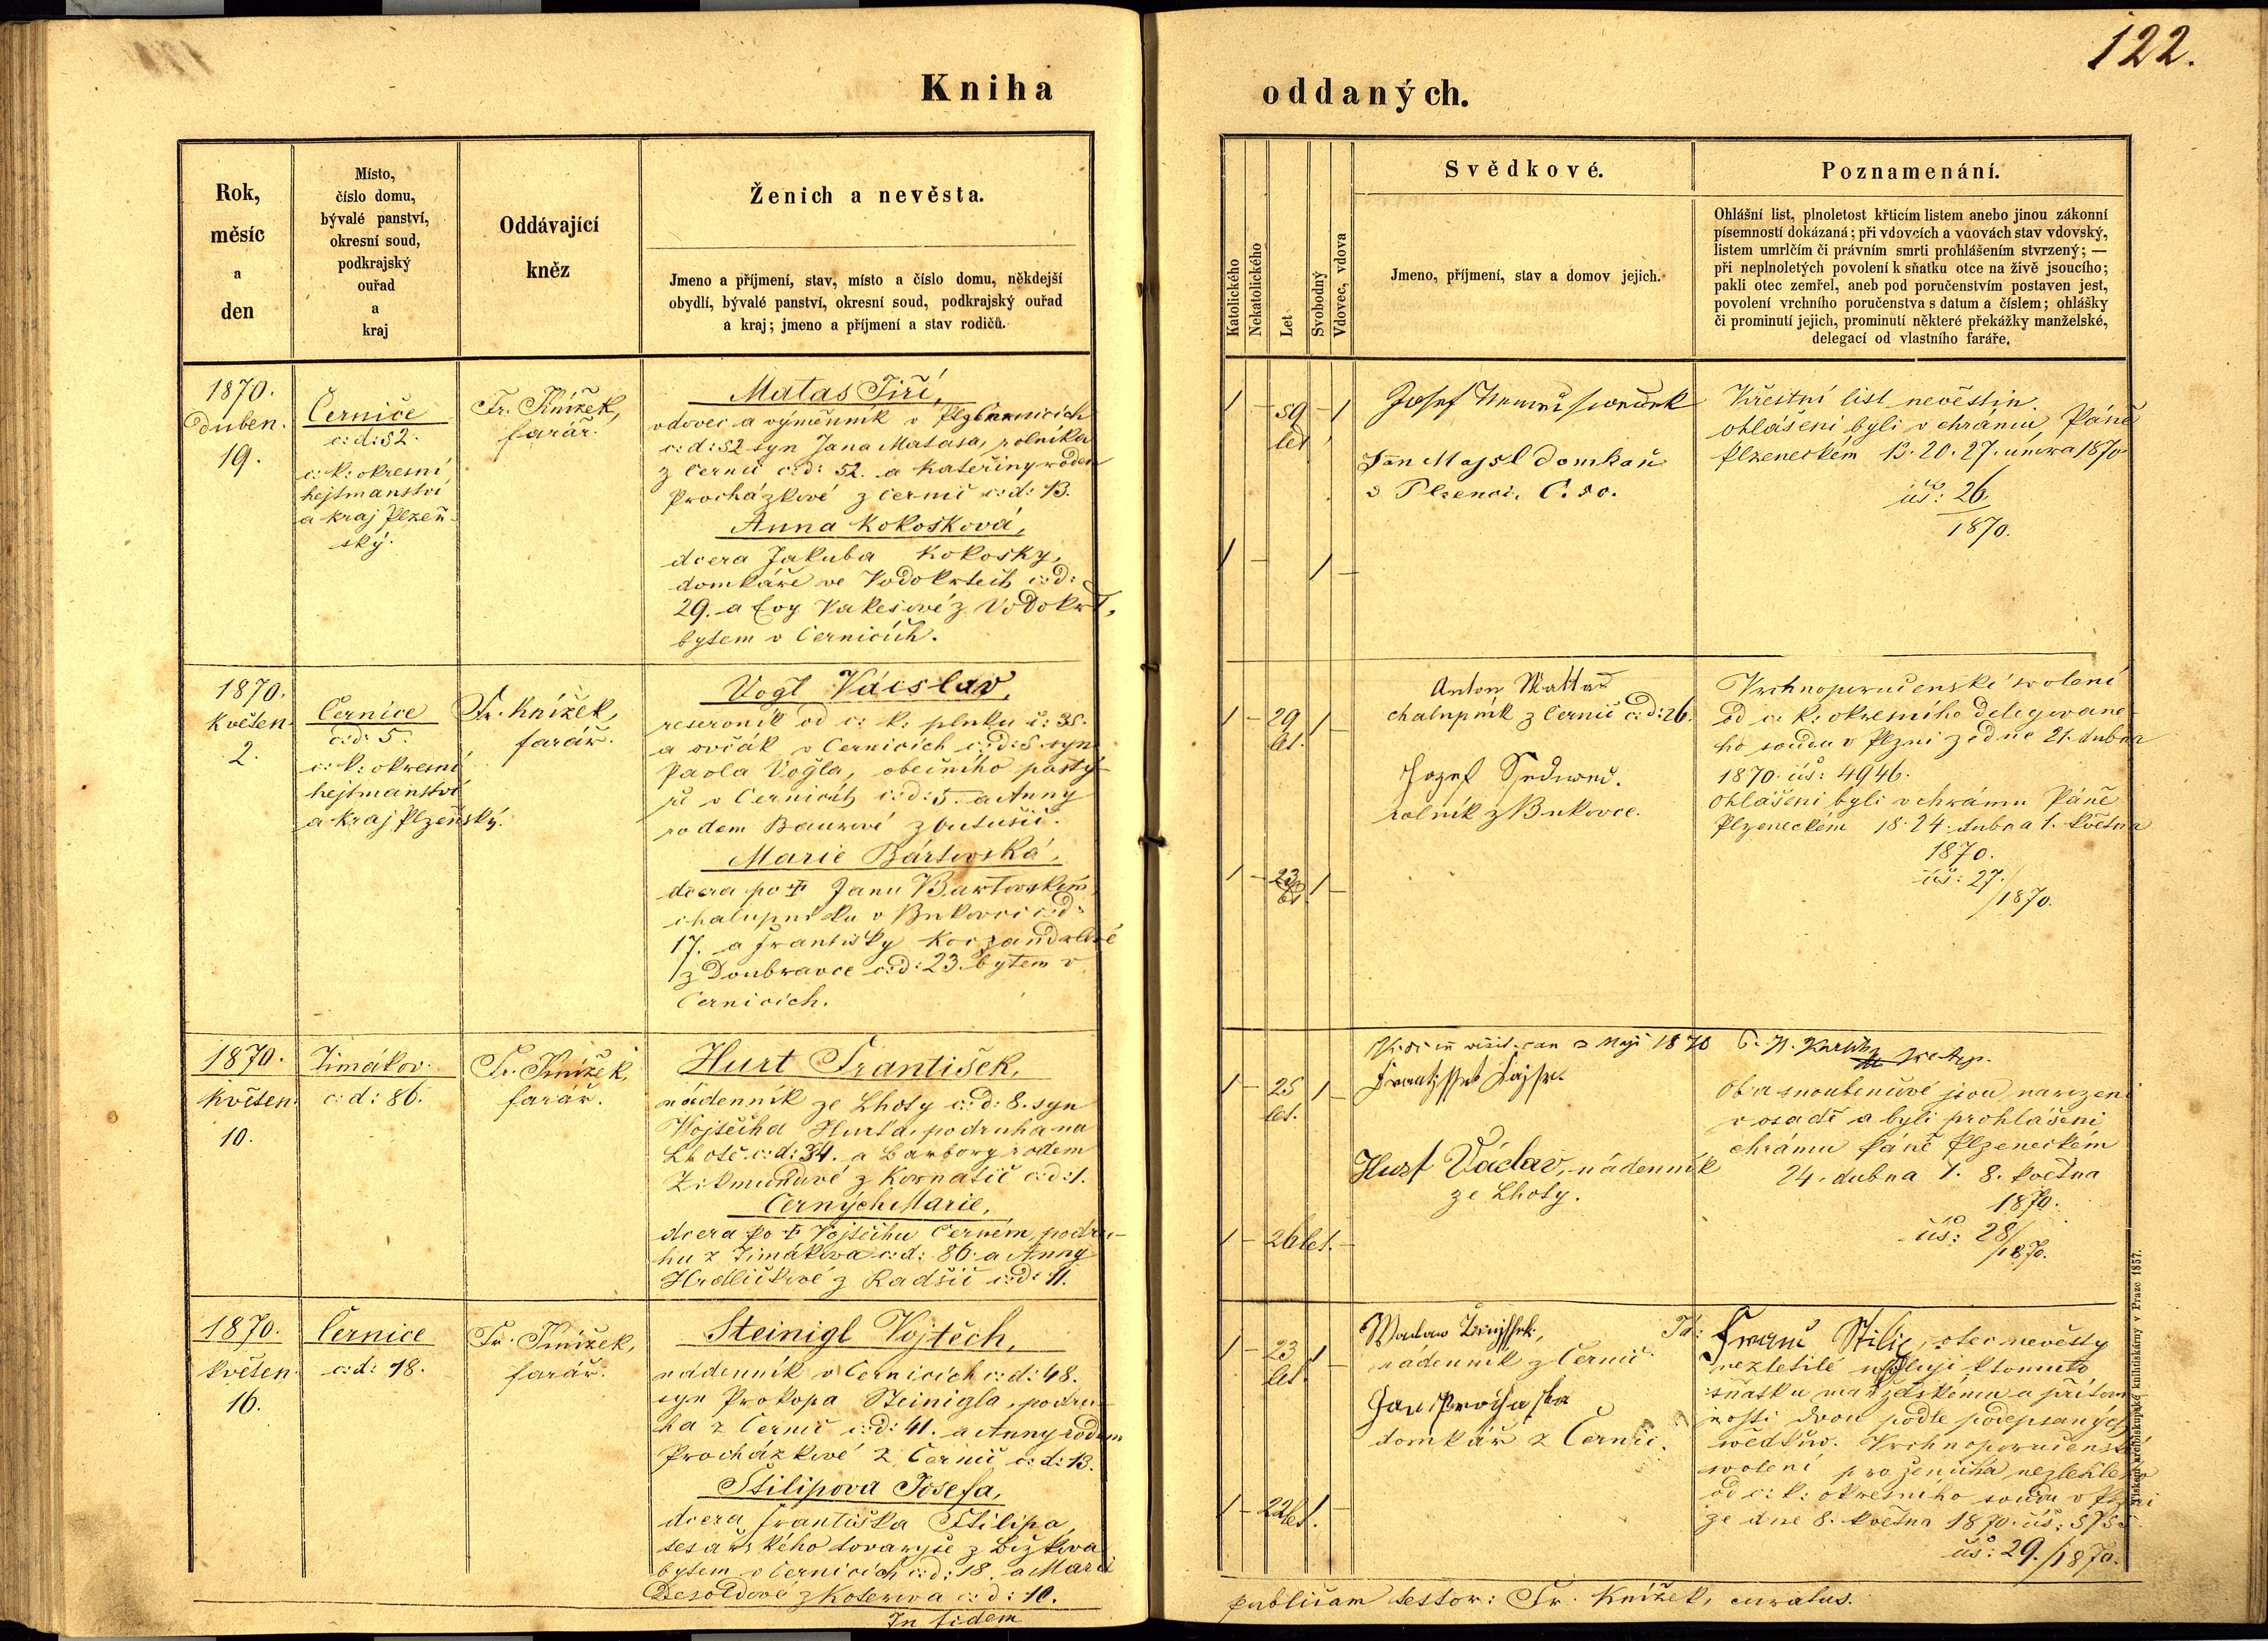 122.
Kniha
oddaných.
Rok,
měsíc
a
den
Místo,
číslo domu,
bývalé panství,
okresní soud,
podkrajský
ouřad
a
kraj
Oddávající
kněz
Ženich a nevěsta.
Jmeno a příjmení, stav, místo a číslo domu, někdejší
obydlí, bývalé panství, okresní soud, podkrajský ouřad
a kraj; jmeno a příjmení a stav rodičů.
Katolického
Nekatolického
Let
Svobodný
Vdovec, vdova
Svědkové.
Jmeno, příjmení, stav a domov jejich.
Poznamenání.
Ohlášní list, plnoletost křticím listem anebo jinou zákonní
písemností dokázaná; při vdovcích a vdovách stav vdovský,
listem umrlčím či právním smrti prohlášením stvrzený; —
při neplnoletých povolení k sňatku otce na živě jsoucího;
pakli otec zemřel, aneb pod poručenstvím postaven jest,
povolení vrchního poručenstva s datum a číslem; ohlášky
či prominutí jejich, prominutí některé překážky manželské,
delegací od vlastního faráře.
1870.
duben.
19.
Černice
c: d: 52.
c: k: okresní
hejtmanství
a kraj Plzeň-
ský.
Fr. Knížek,
farář.
Matas Jiří,
vdovec a výměnník v Černicích
c: d: 52 syn Jana Matasa, rolníka
z Černic c: d: 52. a Kateřiny rodem
Procházkové z Černic c: d: 13.
Anna Kokošková,
dcera Jakuba Kokosky,
domkáře ve Vodokrtech c: d:
29. a Evy z Vodokrt,
bytem v Černicích.
1 - 59 - 1
let
1 - 1 -
Josef
Jan Majsl domkař
v Plzenci. C. 50.
Křestní list nevěstin.
ohlášeni byli v chrámu Páně
Plzeneckém 13. 20. 27. února 1870
čís: 26
1870.
1870.
Květen.
2.
Černice
c: d: 5.
c: k: okresní
hejtmanství
a kraj Plzeňský.
Fr. Knížek,
farář.
Vogl Václav,
reservník od c: k: pluku č: 35.
a ovčák v Černicích c: d: 5. syn
Pavla Vogla, obecního pastý-
ře v Černicích c: d: 5. a Anny
rodem Baurové z
Marie Bártovská,
dcera po † Janu Bartovském
chalupníku v Bukovci c: d:
17. a Františky
z Doubravce c: d: 23. bytem v
Černicích.
1 - 29 1 -
let.
1 - 23 1 -
let
Anton Mattas
chalupník z Černic c: d: 26.
Jozef
rolník z Bukovce.
Vrchnoporučenské svolení
od c: k: okresního delegované-
ho soudu v Plzni ze dne 21. dubna
1870. čís: 4946.
ohlášeni byli v chrámu Páně
Plzeneckém 18. 24. dubna 1. května
1870.
čís: 27.
/1870.
1870.
květen.
10.
Timákov.
c: d: 86.
Fr. Knížek,
farář.
Hurt František,
nádenník ze Lhoty c: d: 8. syn
Vojtěcha Hurta, podruha na
Lhotě. c: d: 34. a Barbory rodem
Zikmundové z Kornatic c: d: 1.
Černých Marie,
dcera po † Vojtěchu Černém, podru-
hu z Timákova c: d: 86. a Anny
Hrdličkové z Radčic c: d: 11.
1 - 25 1 -
let.
1 - 26 let. -
Vidi in visit. can 2 Maji 1870
Hurt Václav, nádenník
ze Lhoty.
Oba snoubencové jsou narozeni
v osadě a byli prohlášeni
chrámu Páně Plzeneckém
24. dubna 1. 8. května
1870.
čís: 28/
1870.
1870.
květen.
16.
Černice
c: d: 18.
Fr. Knížek,
farář.
Steinigl Vojtěch,
nádenník v Černicích c: d: 48.
syn Prokopa Steinigla, podru-
ha z Černic c: d: 41. a Anny rodem
Procházkové z Černic c: d: 13.
Štilipova Josefa,
dcera Františka Štilipa,
tesařského tovaryše z
bytem v Černicích c: d: 18. a Marie
Dezoldové z Koterova c: d: 10.
In fidem
1 - 23 1 -
let.
1 - 22 let 1. -
nádenník z Černic.
Jan Prochaska
domkář z Černic.
otec nevěsty
nezletilé k tomuto
sňatku manželskému u přítom-
nosti dvou podle podepsaných
svědkův. Vrchnoporučenské
svolení pro ženicha nezletilého
od c: k: okresního soudu v Plzni
ze dne 8. května 1870. čís:
čís: 29./1870.
publicam testor: Fr. Knížek, curatus.
Tiskem arcibiskupské knihtiskárny v Praze 1857.